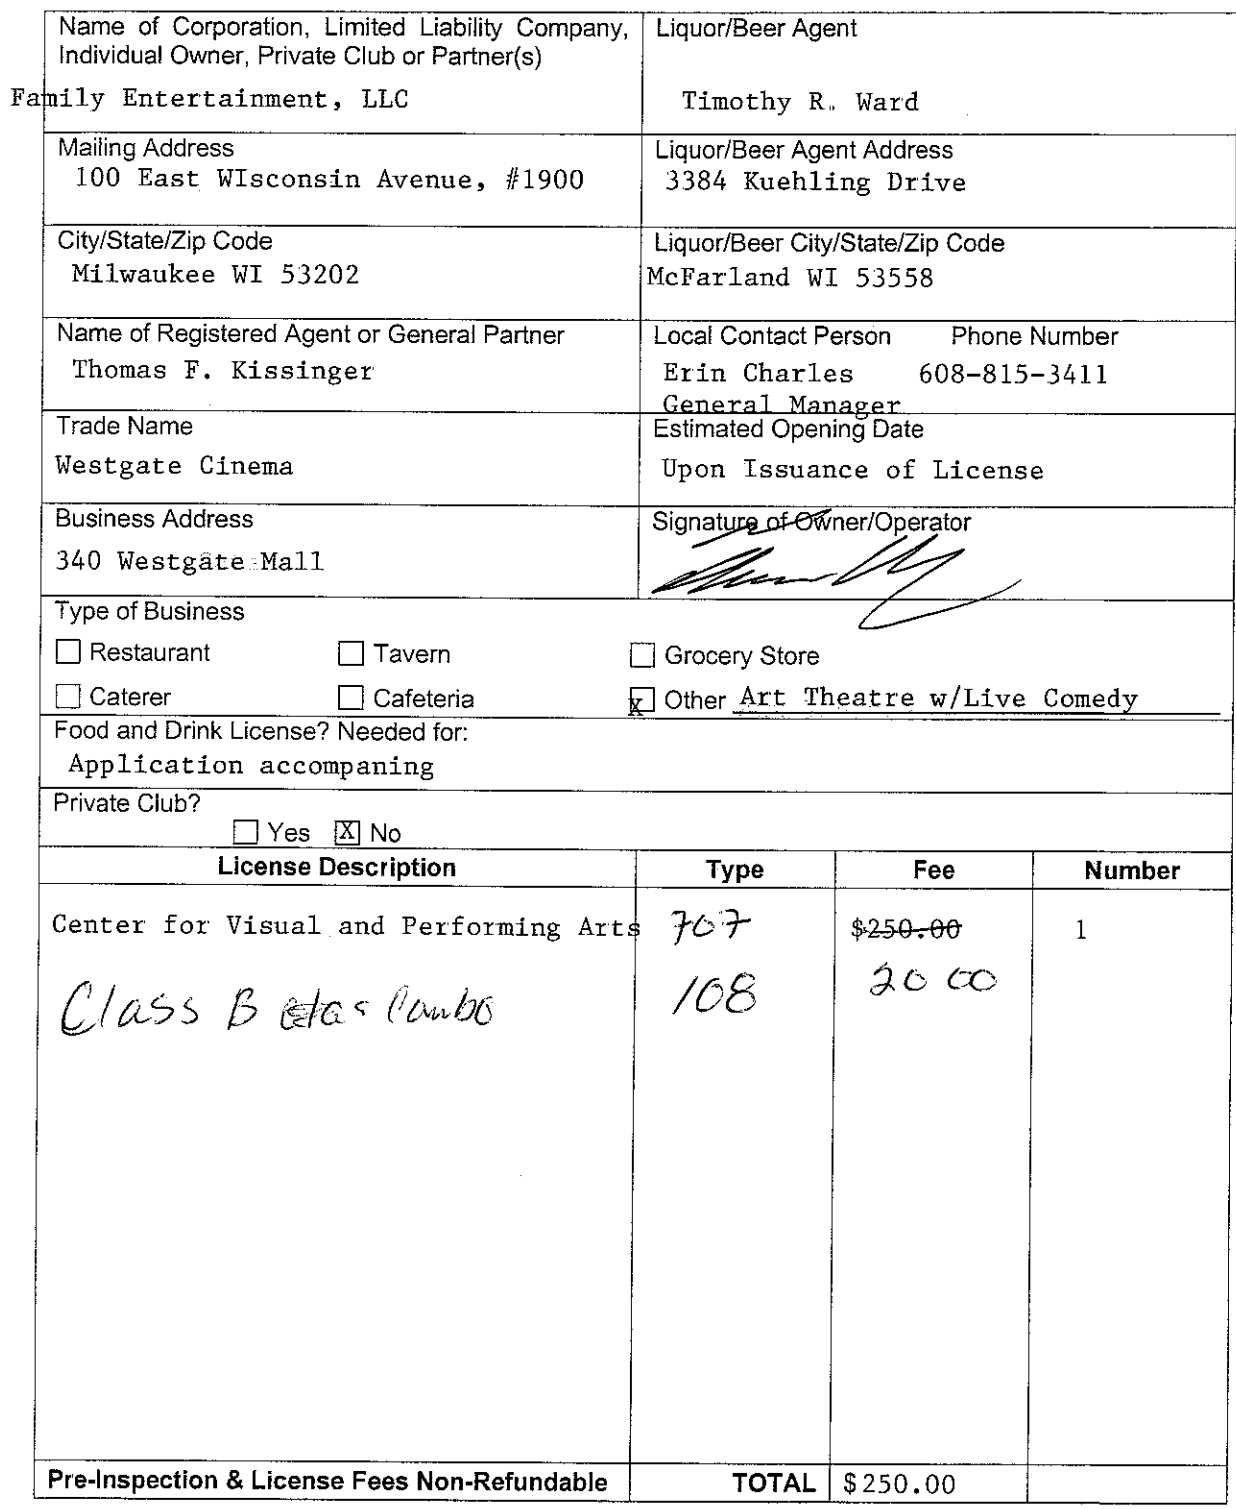 Name of Corporation, Limited Liability Company,
Individual Owner, Private Club or Partner(s)
Family Entertainment, LLC
Liquor/Beer Agent
Timothy R. Ward
Mailing Address
100 East WIsconsin Avenue, #1900
Liquor/Beer Agent Address
3384 Kuehling Drive
City/State/Zip Code
Milwaukee WI 53202
Liquor/Beer City/State/Zip Code
McFarland WI 53558
Name of Registered Agent or General Partner
Thomas F. Kissinger
Local Contact Person Phone Number
Erin Charles 608-815-3411
General Manager
Trade Name
Westgate Cinema
Estimated Opening Date
Upon Issuance of License
Business Address
340 Westgate Mall
Signature of Owner/Operator
Type of Business
Restaurant Tavern Grocery Store
Caterer Cafeteria X Other Art Theatre w/Live Comedy
Food and Drink License? Needed for:
Application accompaning
Private Club?
Yes X No
License Description Type Fee Number
Center for Visual and Performing Arts 707 $250.00 1
Class B Combo 108 20 00
Pre-Inspection & License Fees Non-Refundable TOTAL $250.00